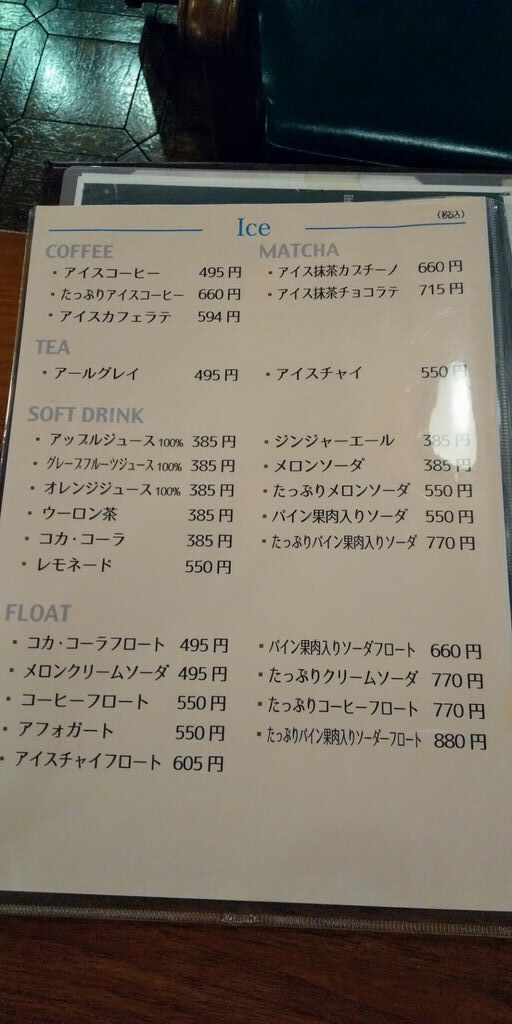 Ice
(税込)
COFFEE
・アイスコーヒー 495円
・たっぷりアイスコーヒー 660円
・アイスカフェラテ 594円
MATCHA
・アイス抹茶カプチーノ 660円
・アイス抹茶チョコラテ 715円
TEA
・アールグレイ 495円
・アイスチャイ 550円
SOFT DRINK
・アップルジュース100% 385円
・グレープフルーツジュース100% 385円
・オレンジジュース100% 385円
・ウーロン茶 385円
・コカ・コーラ 385円
・レモネード 550円
・ジンジャーエール 385円
・メロンソーダ 385円
・たっぷりメロンソーダ 550円
・パイン果肉入りソーダ 550円
・たっぷりパイン果肉入りソーダ 770円
FLOAT
・コカ・コーラフロート 495円
・メロンクリームソーダ 495円
・コーヒーフロート 550円
・アフォガート 550円
・アイスチャイフロート 605円
・パイン果肉入りソーダフロート 660円
・たっぷりクリームソーダ 770円
・たっぷりコーヒーフロート 770円
・たっぷりパイン果肉入りソーダーフロート 880円